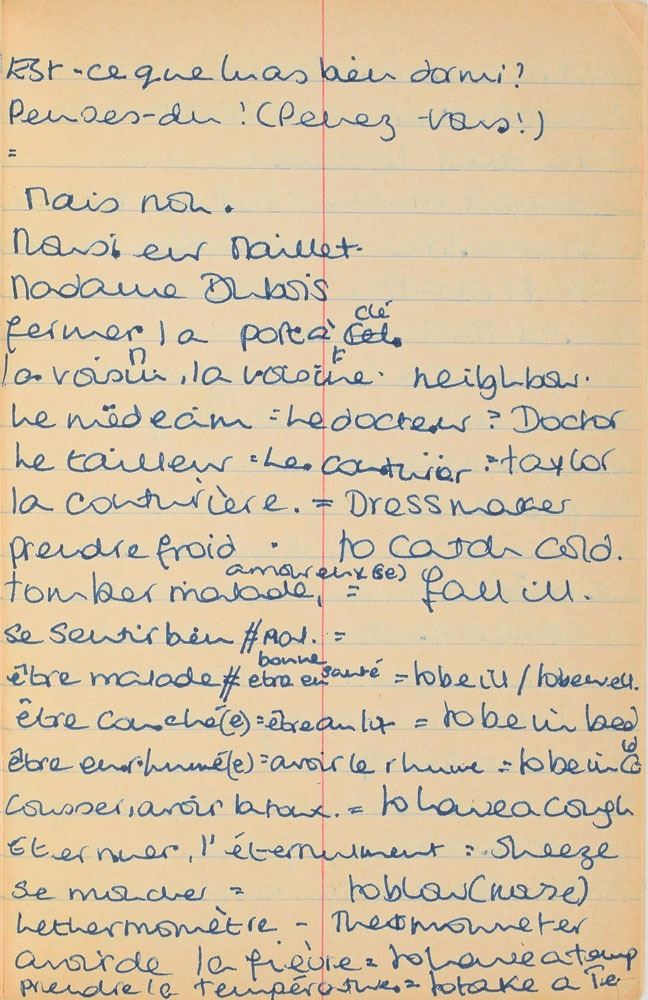 Est-ce que tu as bien dormi?
Penses-du! (Penez-vous!)
=
Mais non.
Monsieur Maillet.
Madame Dubois
fermer la porte à clé
la voisin, la voisine. neighbour.
Le médecim = Le docteur ? Doctor
Le tailleur = Le couturier = taylor
la couturière. = Dressmaker
prendre froid. to catch cold.
tomber malade, amoureux(se) = fall ill.
se sentir bien # Mal. =
être malade # etre en bonne santé = to be ill / to be well.
être couché(e) = être au lit = to be in bed
être enrhumé(e) = avoir le rhume = to be in
tousser, avoir la toux. = to have a cough
Eternuer, l'éternument = Sneeze
se moucher = to blow (nose)
Le thermomètre - Thermometer
avoir de la fièvre = to have a temp
prendre la température = to take a Te